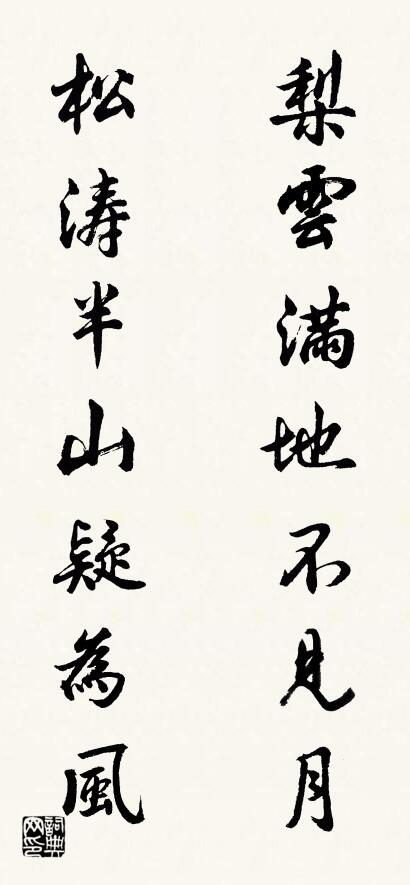 梨雲滿地不見月
松涛半山疑為風